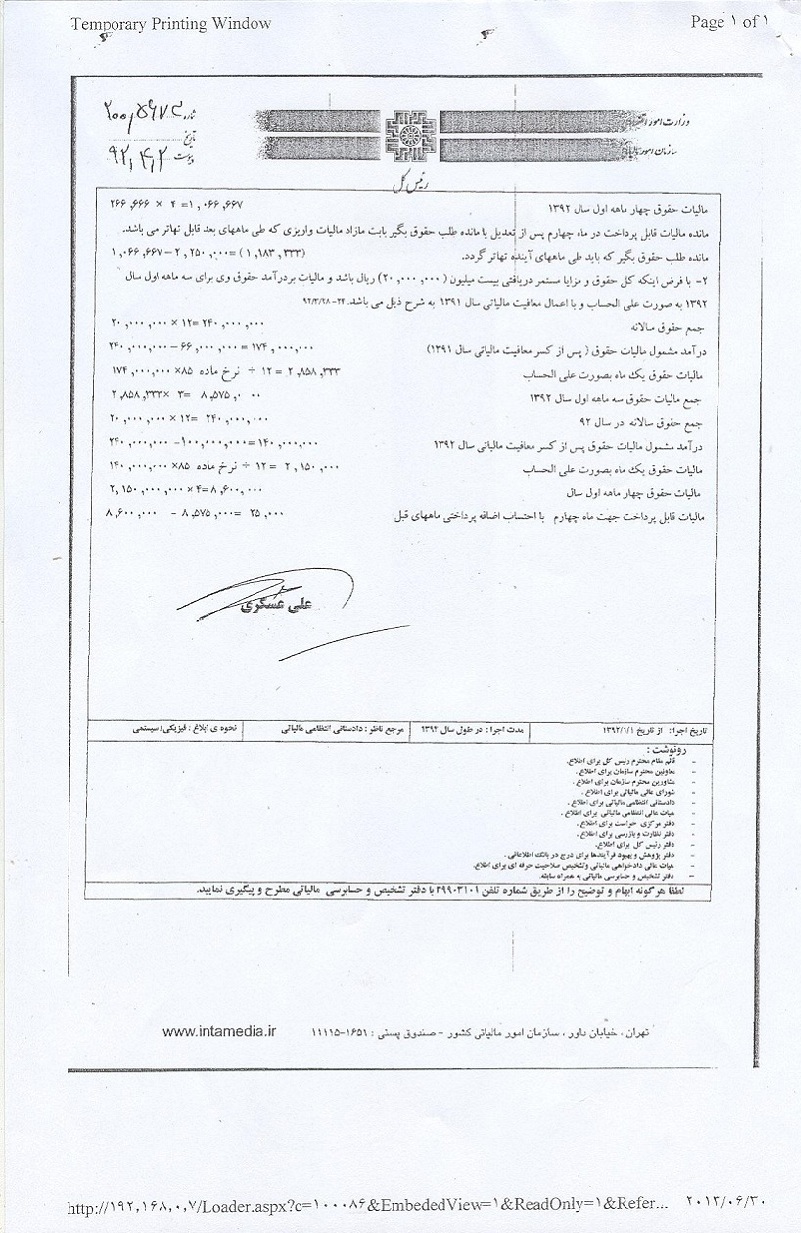 Temporary Printing Window Page ۱ of ۱
وزارت امور
شماره ۲۰۰٫۵۶۷۳
سازمان امور مالیاتی
تاریخ
پیوست ۹۲٫۴٫۲
رئیس کل
مالیات حقوق چهار ماهه اول سال ۱۳۹۲ ۲۶۶,۶۶۶ × ۴ =۱,۰۶۶,۶۶۷
مانده مالیات قابل پرداخت در ماه چهارم پس از تعدیل با مانده طلب حقوق بگیر بابت مازاد مالیات واریزی که طی ماههای بعد قابل تهاتر می باشد.
مانده طلب حقوق بگیر که باید طی ماههای آینده تهاتر گردد. (۱,۱۸۳,۳۳۳) =۱,۰۶۶,۶۶۷-۲,۲۵۰,۰۰۰
۲- با فرض اینکه کل حقوق و مزایا مستمر دریافتی بیست میلیون (۲۰,۰۰۰,۰۰۰) ریال باشد و مالیات بردرآمد حقوق وی برای سه ماهه اول سال
۱۳۹۲ به صورت علی الحساب و با اعمال معافیت مالیاتی سال ۱۳۹۱ به شرح ذیل می باشد. ۲۲-۹۲/۳/۲۸
جمع حقوق سالانه ۲۰,۰۰۰,۰۰۰ × ۱۲= ۲۴۰,۰۰۰,۰۰۰
درآمد مشمول مالیات حقوق ( پس از کسر معافیت مالیاتی سال ۱۳۹۱) ۲۴۰,۰۰۰,۰۰۰ – ۶۶,۰۰۰,۰۰۰ = ۱۷۴,۰۰۰,۰۰۰
مالیات حقوق یک ماه بصورت علی الحساب ۱۷۴,۰۰۰,۰۰۰× نرخ ماده ۸۵ ÷ ۱۲ = ۲,۸۵۸,۳۳۳
جمع مالیات حقوق سه ماهه اول سال ۱۳۹۲ ۲,۸۵۸,۳۳۳× ۳= ۸,۵۷۵,۰۰۰
جمع حقوق سالانه در سال ۹۲ ۲۰,۰۰۰,۰۰۰ × ۱۲= ۲۴۰,۰۰۰,۰۰۰
درآمد مشمول مالیات حقوق پس از کسر معافیت مالیاتی سال ۱۳۹۲ ۲۴۰,۰۰۰,۰۰۰ -۱۰۰,۰۰۰,۰۰۰=۱۴۰,۰۰۰,۰۰۰
مالیات حقوق یک ماه بصورت علی الحساب ۱۴۰,۰۰۰,۰۰۰× نرخ ماده ۸۵ ÷ ۱۲ = ۲,۱۵۰,۰۰۰
مالیات حقوق چهار ماهه اول سال ۲,۱۵۰,۰۰۰,۰۰۰ × ۴=۸,۶۰۰,۰۰۰
مالیات قابل پرداخت جهت ماه چهارم با احتساب اضافه پرداختی ماههای قبل ۸,۶۰۰,۰۰۰ - ۸,۵۷۵,۰۰۰= ۲۵,۰۰۰
علی عسگری
تاریخ اجرا: از تاریخ ۱۳۹۲/۱/۱ مدت اجرا : در طول سال ۱۳۹۲ مرجع ناظر : دادستانی انتظامی مالیاتی نحوه ی ابلاغ : فیزیکی/ سیستمی
رونوشت :
- قائم مقام محترم رئیس کل برای اطلاع.
- معاونین محترم سازمان برای اطلاع .
- مشاورین محترم سازمان برای اطلاع .
- شورای عالی مالیاتی برای اطلاع .
- دادستانی انتظامی مالیاتی برای اطلاع .
- هیات عالی انتظامی مالیاتی برای اطلاع .
- دفتر مرکزی حراست برای اطلاع.
- دفتر نظارت و بازرسی برای اطلاع .
- دفتر رئیس کل برای اطلاع.
- دفتر پژوهش و بهبود فرآیندها برای درج در بانک اطلاعاتی .
- هیات عالی دادخواهی مالیاتی و تشخیص صلاحیت حرفه ای برای اطلاع.
- دفتر تشخیص و حسابرسی مالیاتی به همراه سابقه.
لطفا هرگونه ابهام و توضیح را از طریق شماره تلفن ۳۹۹۰۳۱۰۱ با دفتر تشخیص و حسابرسی مالیاتی مطرح و پیگیری نمایید.
تهران، خیابان داور ، سازمان امور مالیاتی کشور - صندوق پستی : ۱۶۵۱-۱۱۱۱۵ www.intamedia.ir
http://۱۹۲,۱۶۸,۰,۷/Loader.aspx?c=۱۰۰۰۸۶&EmbededView=۱&ReadOnly=۱&Refer... ۲۰۱۳/۰۶/۳۰